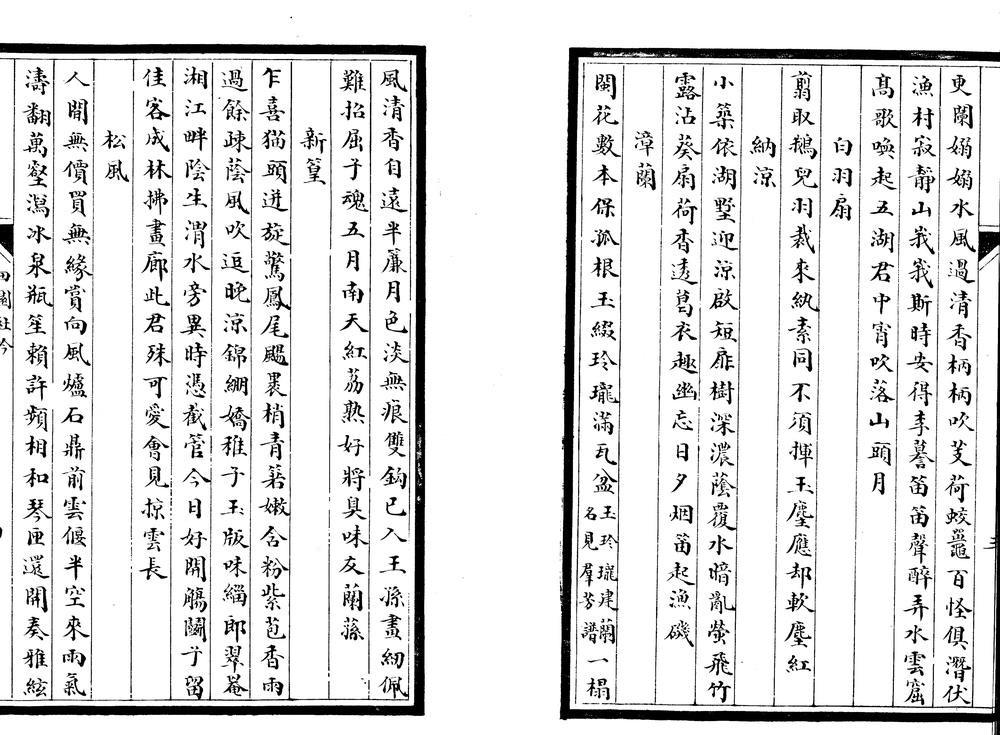 更闌嫋嫋水風過清香柄柄吹芰荷蛟鼉百怪俱潛伏
漁村寂靜山峩峩斯時安得李謩笛笛聲醉弄水雲窟
髙歌喚起五湖君中宵吹落山頭月
白羽扇
翦取鵝兒羽裁來紈素同不須揮玉麈應却軟塵紅
納涼
小築依湖墅迎涼啟短扉樹深濃蔭覆水暗亂螢飛竹
露沾葵扇荷香透葛衣趣幽忘日夕烟笛起漁磯
漳蘭
閩花數本保孤根玉綴玲瓏滿瓦盆玉玲瓏建蘭名見羣芳譜一榻
風清香自遠半簾月色淡無痕雙鈎已入王孫畫紉佩
難招屈子魂五月南天紅荔熟好將臭味友蘭蓀
新篁
乍喜猫頭迸旋驚鳳尾颺裹梢青箬嫩含粉紫苞香雨
過餘疎蔭風吹逗晚涼錦綳嬌稚子玉版味緇郎翠菴
湘江畔陰生渭水旁異時憑截管今日好開觴鬭于留
佳客成林拂畫廊此君殊可愛會見掠雲長
松風
人間無價買無緣賞向風爐石鼎前雲偃半空來雨氣
濤翻萬壑瀉冰泉瓶笙賴許頻相和琴匣還開奏雅絃